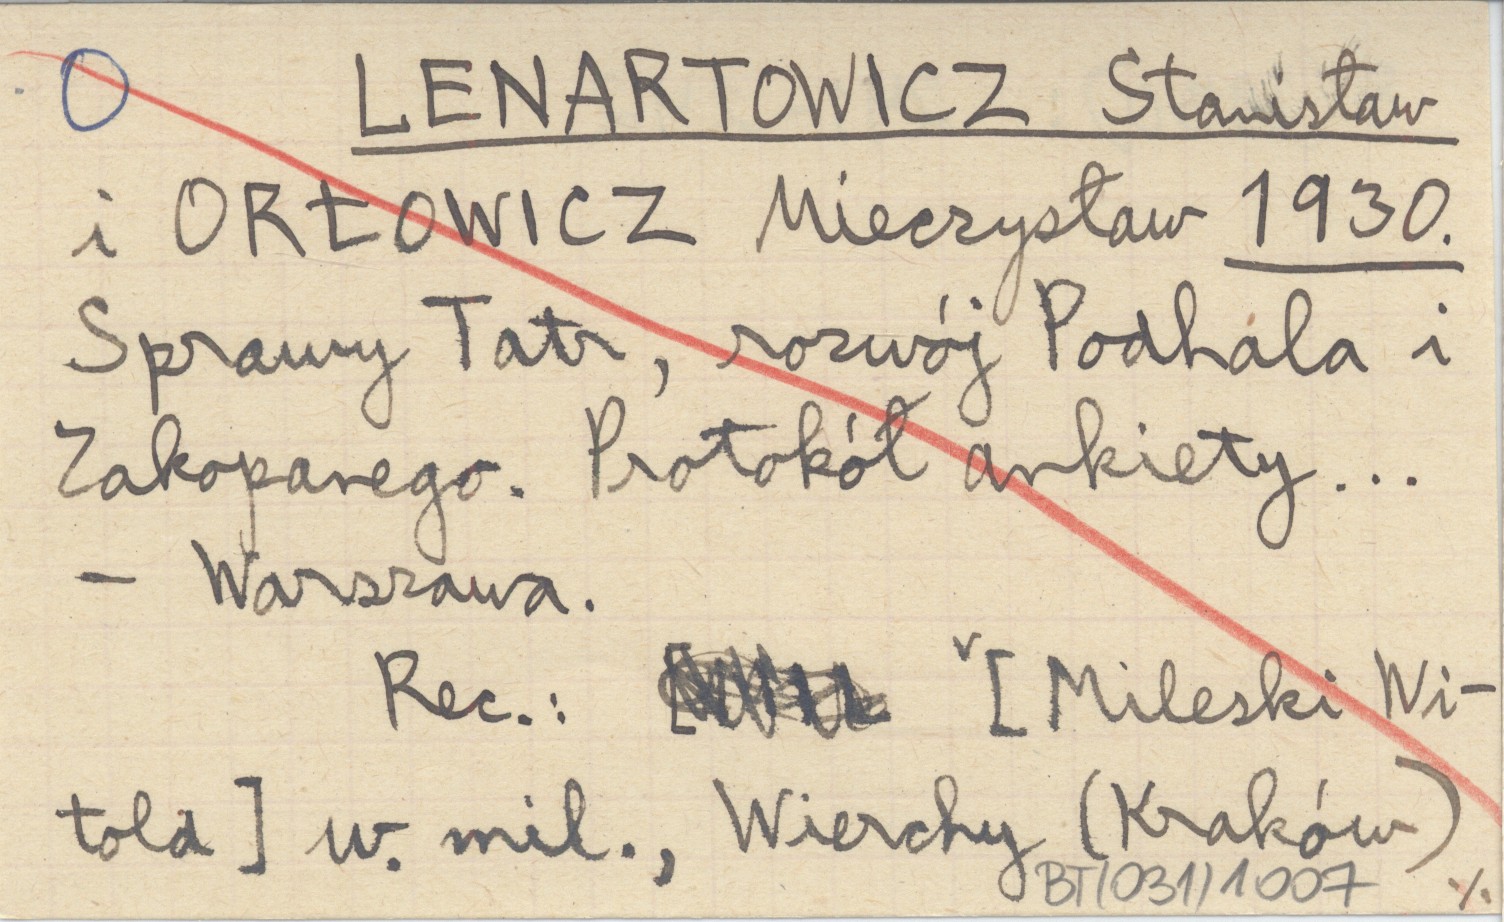 O LENARTOWICZ Stanisław
i ORŁOWICZ Mieczysław 1930.
Sprawy Tatr, rozwój Podhala i
Zakopanego. Protokół ankiety...
- Warszawa.
Rec.: [Mileski Wi-
told] w. mil., Wierchy (Kraków)
BT(031)1007 ./.